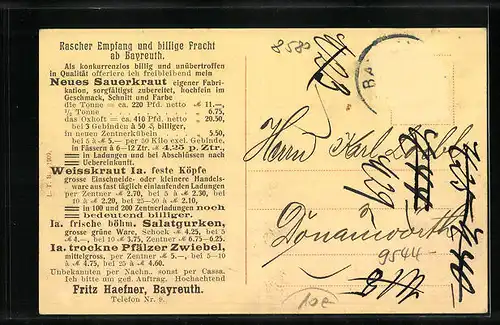 Rascher Empfang und billige Fracht
ab Bayreuth.
Als konkurrenzlos billig und unübertroffen
in Qualität offeriere ich freibleibend mein
Neues Sauerkraut eigener Fabri-
kation, sorgfältigst zubereitet, hochfein im
Geschmack, Schnitt und Farbe
die Tonne = ca. 220 Pfd. netto M 11.—,
½ Tonne 6.75,
das Oxhoft = ca. 410 Pfd. netto " 20.50,
bei 3 Gebinden à 50 ₰ billiger,
in neuen Zentnerkübeln " 5.50,
bei 5 à M 5.— per 50 Kilo exkl. Gebinde,
in Fässern à 6—12 Ztr. M 4.25 p. Ztr.,
in Ladungen und bei Abschlüssen nach
Uebereinkunft.
Weisskraut Ia. feste Köpfe
grosse Einschneide- oder kleinere Handels-
ware aufs fast täglich einlaufenden Ladungen
per Zentner M 2.70, bei 5 à M 2.50, bei
10 à M 2.20, bei 25—50 à M 2.10,
in 100 und 200 Zentnerladungen noch
bedeutend billiger.
Ia. frische böhm. Salatgurken,
grosse grüne Ware, Schock M 4.25, bei 5
à M 4.—, bei 10 M 3.75, Zentner M 6.75—6.25.
Ia. trockne Pfälzer Zwiebel,
mittelgross, per Zentner M 5.—, bei 5—10
à M 4.75, bei 25 à M 4.60.
Unbekannten per Nachn. sonst per Cassa.
Ich bitte um gefl. Auftrag. Hochachtend
Fritz Haefner, Bayreuth.
Telefon Nr. 9.
8580
BA
Herrn Karl
Donauwörth
9544
10€